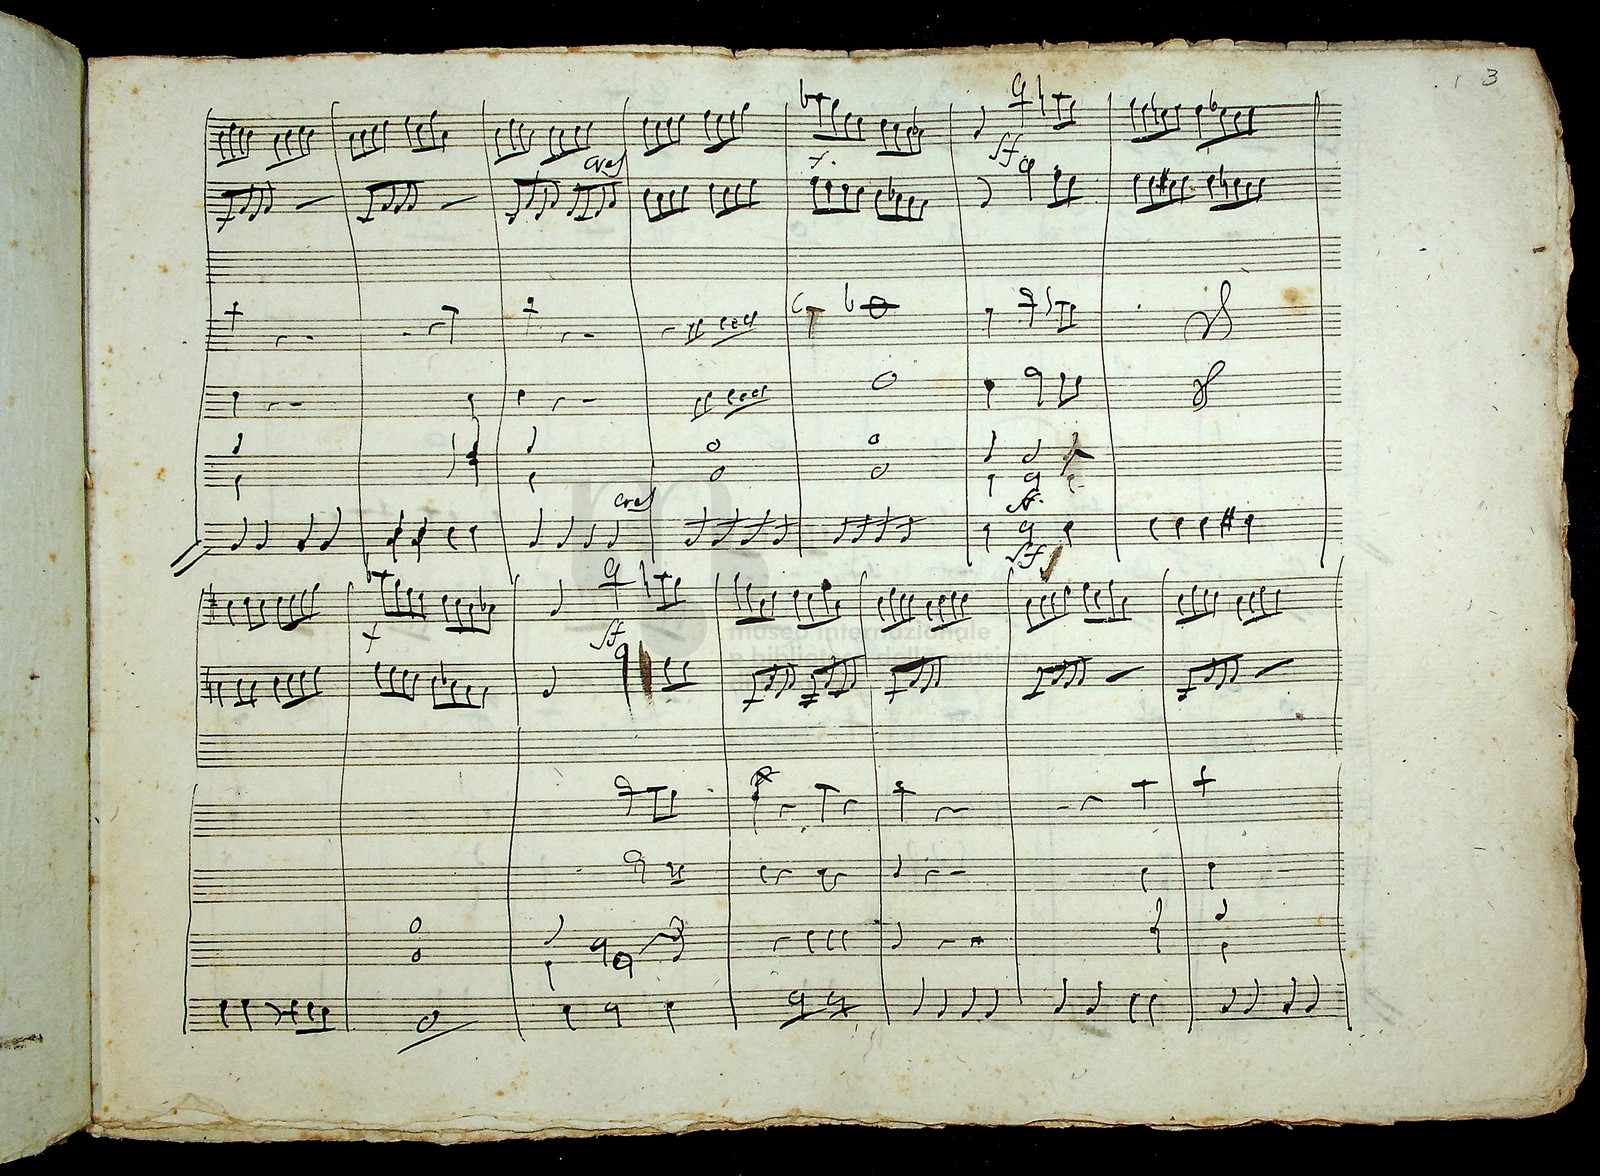 3
cres
f.
sf
cres
sf.
sf
f
sf
museo internazionale
e biblioteca della musica